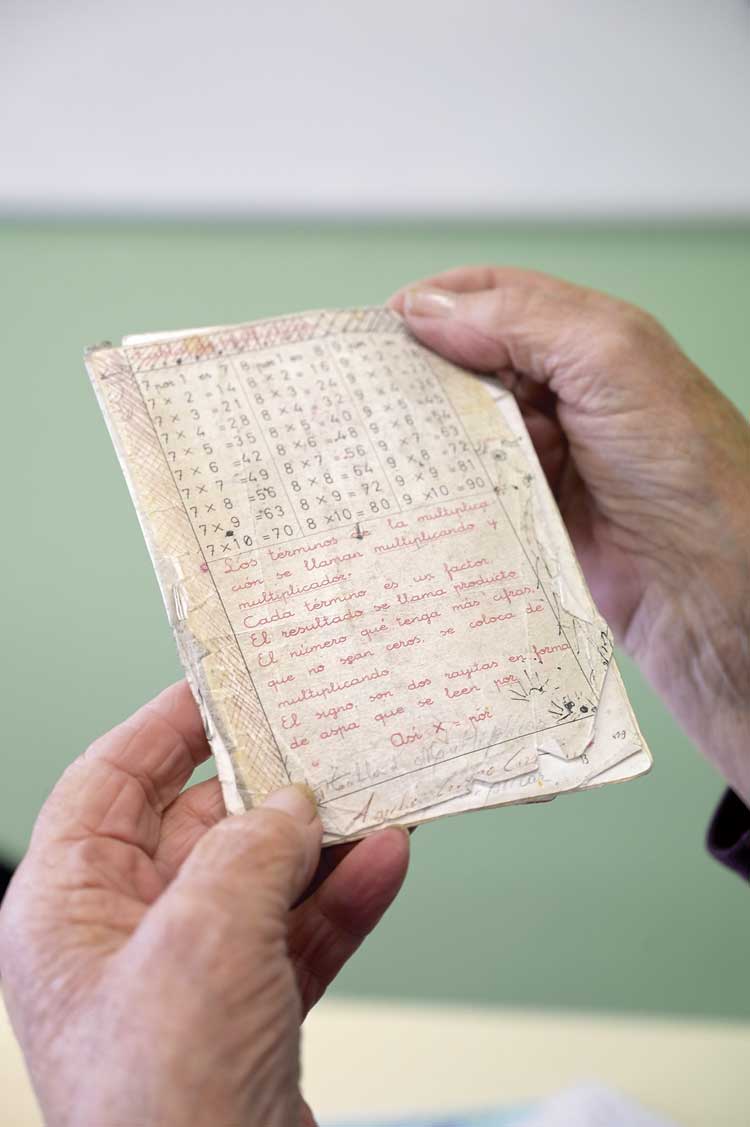 7 por 1 es 7
7 x 2 = 14
7 x 3 = 21
7 x 4 = 28
7 x 5 = 35
7 x 6 = 42
7 x 7 = 49
7 x 8 = 56
7 x 9 = 63
7 x 10 = 70
8 por 1 es 8
8 x 2 = 16
8 x 3 = 24
8 x 4 = 32
8 x 5 = 40
8 x 6 = 48
8 x 7 = 56
8 x 8 = 64
8 x 9 = 72
8 x 10 = 80
9 x
9 x
9 x
9 x 5 = 45
9 x 6 = 54
9 x 7 = 63
9 x 8 = 72
9 x 9 = 81
9 x 10 = 90
Los términos de la multiplica
ción se llaman multiplicando y
multiplicador.
Cada término es un factor.
El resultado se llama producto
El número que tenga más cifras,
que no sean ceros, se coloca de
multiplicando
El signo, son dos rayitas en forma
de aspa que se leen por
Así x = por